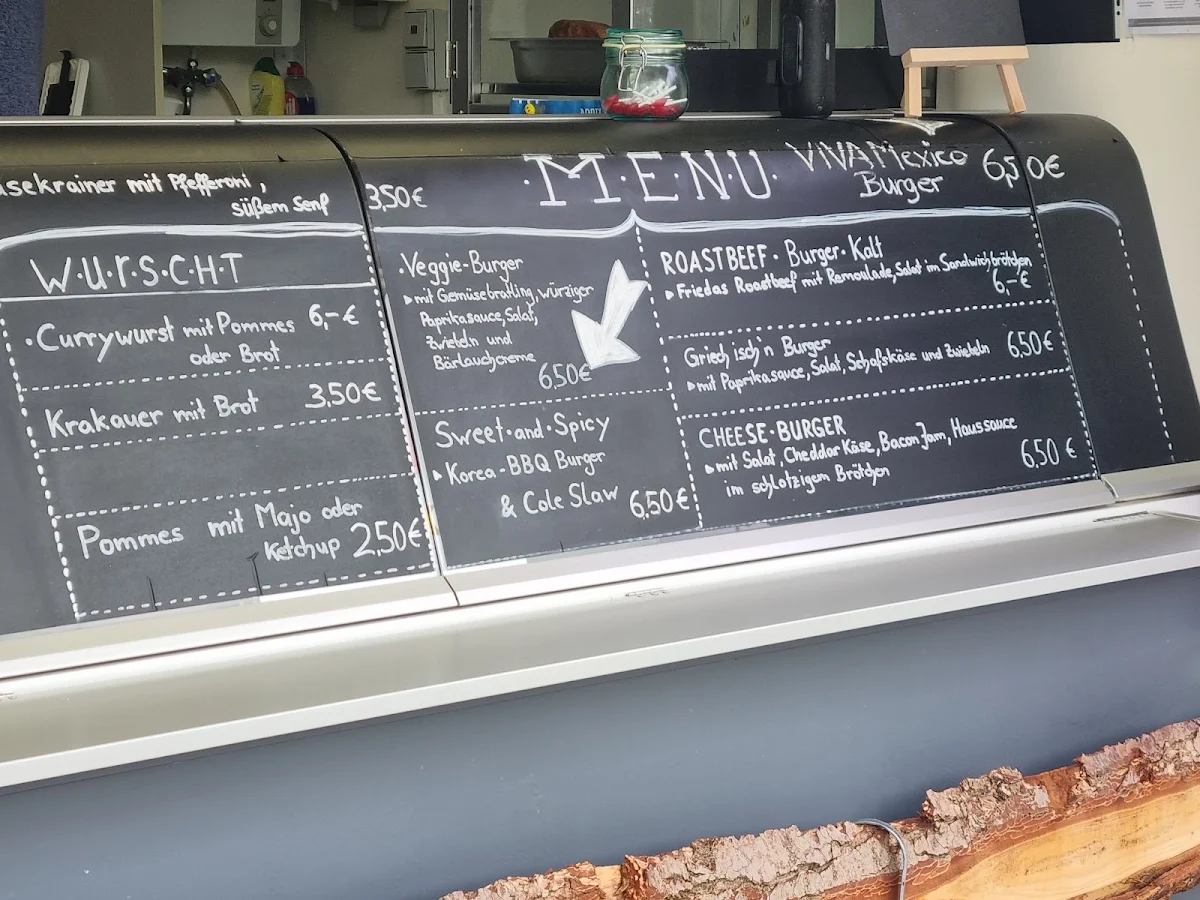 sekrainer mit Pfefferoni,
süßem Senf 3,50€
W·u·r·s·c·H·T
·Currywurst mit Pommes 6,-€
oder Brot
Krakauer mit Brot 3,50€
Pommes mit Majo oder
Ketchup 2,50€
·M·E·N·U·
VIVA Mexico 6,50€
Burger
·Veggie-Burger
mit Gemüsebratling, würziger
Paprikasauce, Salat,
Zwiebeln und
Bärlauchcreme
6,50€
Sweet·and·Spicy
Korea-BBQ Burger
& Cole Slaw 6,50€
ROASTBEEF·Burger·Kalt
Friedas Roastbeef mit Remoulade, Salat im Sandwichbrötchen
6,-€
Griechisch'n Burger 6,50€
mit Paprikasauce, Salat, Schafskäse und Zwiebeln
CHEESE·BURGER
mit Salat, Cheddar Käse, Bacon Jam, Haussauce
im schlotzigem Brötchen 6,50 €